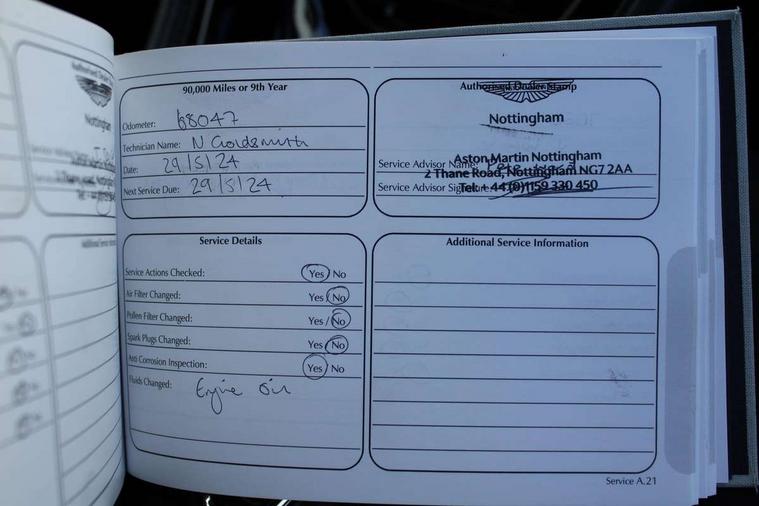 Authorised Dealer Stamp
Nottingham
90,000 Miles or 9th Year
Odometer: 68047
Technician Name: N Goldsmith
Date: 29/5/24
Next Service Due: 29/5/24
Authorised Dealer Stamp
Nottingham
Aston Martin Nottingham
Service Advisor Name:
2 Thane Road, Nottingham NG7 2AA
Service Advisor Signature
Tel: +44 (0)1159 330 450
Service Details
Service Actions Checked: Yes / No
Air Filter Changed: Yes / No
Pollen Filter Changed: Yes / No
Spark Plugs Changed: Yes / No
Anti Corrosion Inspection: Yes / No
Fluids Changed: Engine Oil
Additional Service Information
Service A.21